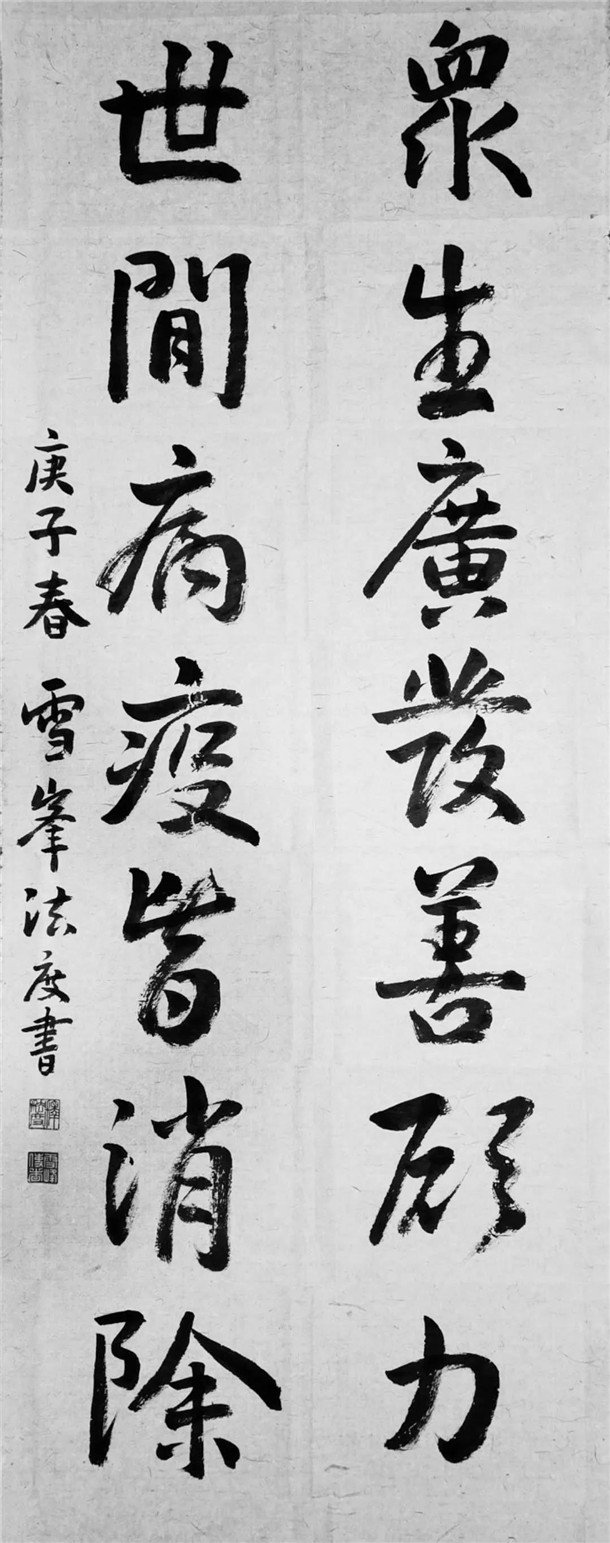 眾生廣發善願力
世間病疫皆消除
庚子春 雪峯法度書